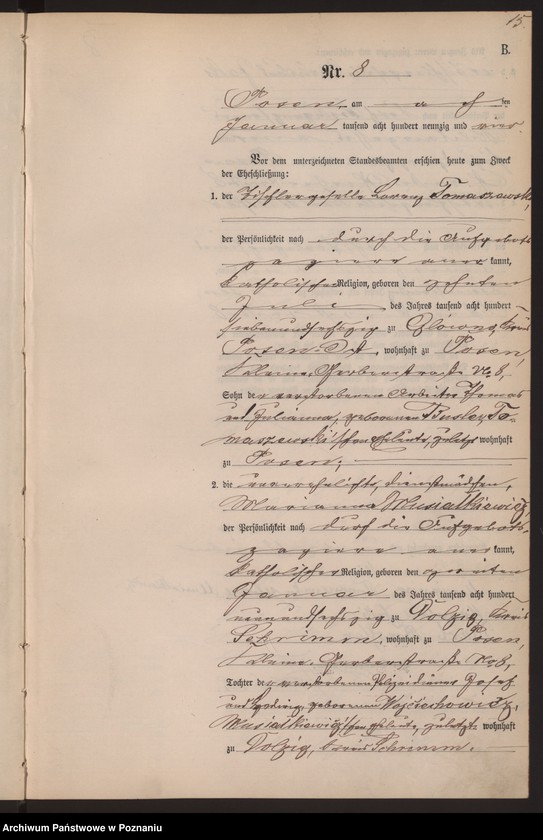 15.
B.
Nr. 8
Posen am acht ten
Januar tausend acht hundert neunzig und vier.
Vor dem unterzeichneten Standesbeamten erschien heute zum Zweck
der Eheschließung:
1. der Tischlergeselle Lorenz Tomaszewski,
der Persönlichkeit nach durch die Aufgebots-
papiere aner kannt,
katholischer Religion, geboren den zehnten
Juli des Jahres tausend acht hundert
siebenundsechzig zu Glówno, Kreis
Posen-Ost, wohnhaft zu Posen,
kleine Gerberstraße No 8,
Sohn der verstorbenen Arbeiter Thomas
und Julianna, geborenen Busley, To-
maszewski'schen Eheleute, zuletzt wohnhaft
zu Posen;
2. die unverehelichte, Dienstmädchen,
Marianna Musialkiewicz,
der Persönlichkeit nach durch die Aufgebots-
papiere aner kannt,
katholischer Religion, geboren den zweiten
Januar des Jahres tausend acht hundert
neunundsechzig zu Dolzig, Kreis
Schrimm, wohnhaft zu Posen,
kleine Gerberstraße No 8,
Tochter der verstorbenen Polizeidiener Josef
und Hedwig, geborenen Wojciechowicz,
Musialkiewicz'schen Eheleute, zuletzt wohnhaft
zu Dolzig, Kreis Schrimm.
Archiwum Państwowe w Poznaniu